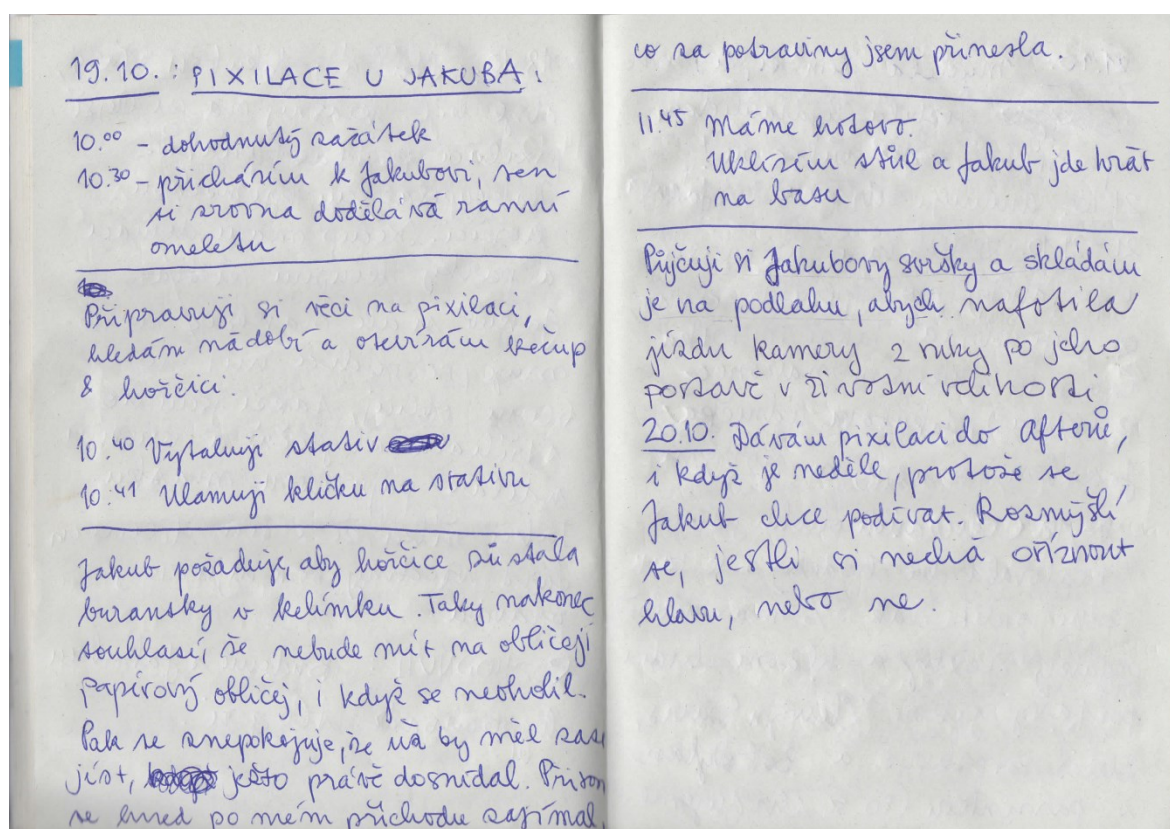 19.10.: PIXILACE U JAKUBA:
10.00 – dohodnutý začátek
10.30 – přicházím k Jakubovi, ten
si zrovna dodělává ranní
omeletu
Připravuji si věci na pixilaci,
hledám nádobí a otevírám kečup
& hořčici.
10.40 Vytahuji stativ
10.41 Ulamuji kličku na stativu
Jakub požaduje, aby hořčice zůstala
buransky v kelímku. Taky nakonec
souhlasí, že nebude mít na obličeji
papírový obličej, i když se neoholil.
Pak se znepokojuje, že už by měl zase
jíst, ježto právě dosnídal. Přitom
se hned po mém příchodu zajímal,
co za potraviny jsem přinesla.
11.45 Máme hotovo.
Uklízím stůl a Jakub jde hrát
na basu
Půjčuji si Jakubovy svršky a skládám
je na podlahu, abych nafotila
jízdu kamery z ruky po jeho
postavě v životní velikosti
20.10. Dávám pixilaci do Afterů,
i když je neděle, protože se
Jakub chce podívat. Rozmýšlí
se, jestli si nechá oříznout
hlavu, nebo ne.